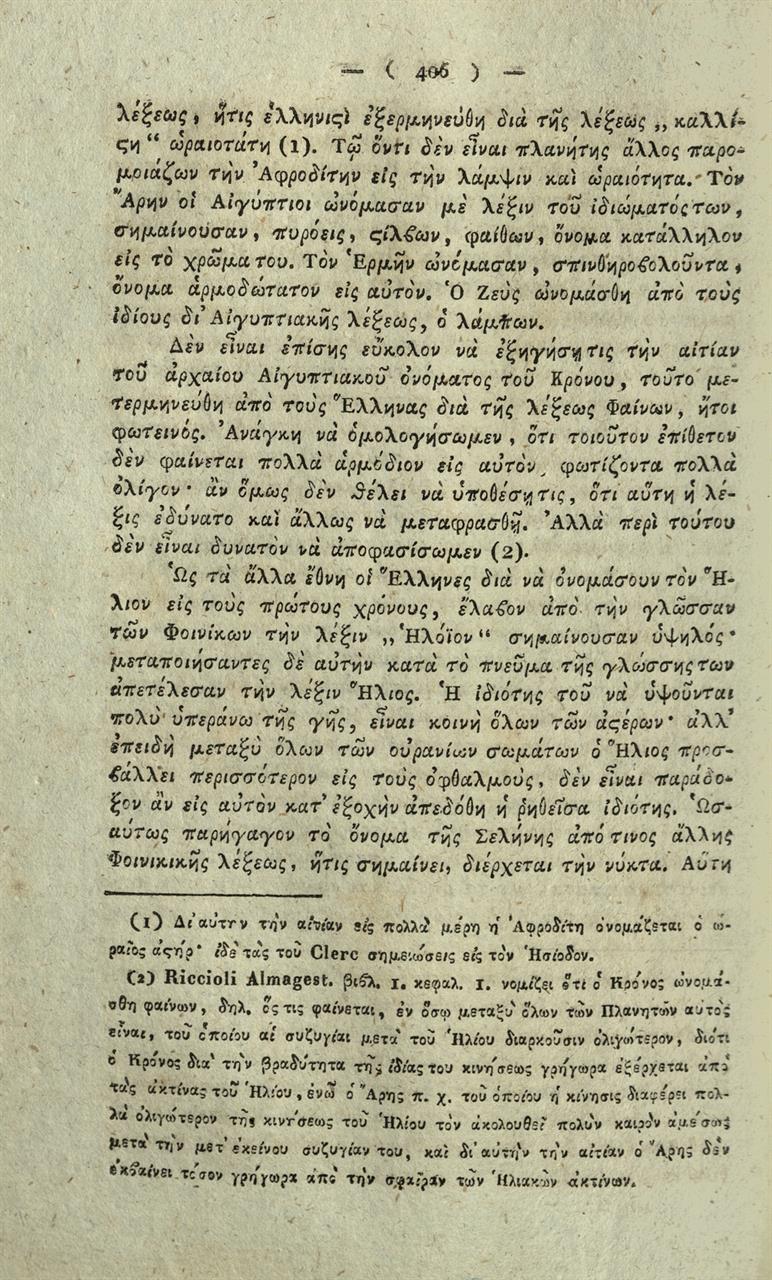 — ( 406 ) —
λέξεως, ἥτις ἑλληνιϛὶ ἐξερμηνεύθη διὰ τῆς λέξεως „ καλλί-
ϛη “ ὡραιοτάτη (1). Τῷ ὄντι δὲν εἶναι πλανήτης ἄλλος παρο-
μοιάζων τὴν Ἀφροδίτην εἰς τὴν λάμψιν καὶ ὡραιότητα. Τὸν
Ἄρην οἱ Αἰγύπτιοι ὠνόμασαν μὲ λέξιν τοῦ ἰδιώματός των,
σημαίνουσαν, πυρόεις, ϛίλβων, φαίθων, ὄνομα κατάλληλον
εἰς τὸ χρῶμα του. Τὸν Ἑρμῆν ὠνόμασαν, σπινθηροβολοῦντα,
ὄνομα ἁρμοδώτατον εἰς αὐτόν. Ὁ Ζεὺς ὠνομάσθη ἀπὸ τοὺς
ἰδίους δι' Αἰγυπτιακῆς λέξεως, ὁ λάμπων.
Δὲν εἶναι ἐπίσης εὔκολον νὰ ἐξηγήσῃ τις τὴν αἰτίαν
τοῦ ἀρχαίου Αἰγυπτιακοῦ ὀνόματος τοῦ Κρόνου, τοῦτο με-
τερμηνεύθη ἀπὸ τοὺς Ἕλληνας διὰ τῆς λέξεως Φαίνων, ἤτοι
φωτεινός. Ἀνάγκη νὰ ὁμολογήσωμεν, ὅτι τοιοῦτον ἐπίθετον
δὲν φαίνεται πολλὰ ἁρμόδιον εἰς αὐτὸν, φωτίζοντα πολλὰ
ὀλίγον· ἂν ὅμως δὲν θέλει νὰ ὑποθέσῃ τις, ὅτι αὕτη ἡ λέ-
ξις ἐδύνατο καὶ ἄλλως νὰ μεταφρασθῇ. Ἀλλὰ περὶ τούτου
δὲν εἶναι δυνατὸν νὰ ἀποφασίσωμεν (2).
Ὡς τὰ ἄλλα ἔθνη οἱ Ἕλληνες διὰ νὰ ὀνομάσουν τὸν Ἥ-
λιον εἰς τοὺς πρώτους χρόνους, ἔλαβον ἀπὸ τὴν γλῶσσαν
τῶν Φοινίκων τὴν λέξιν „ Ἡλόϊον “ σημαίνουσαν ὑψηλός·
μεταποιήσαντες δὲ αὐτὴν κατὰ τὸ πνεῦμα τῆς γλώσσης των
ἀπετέλεσαν τὴν λέξιν Ἥλιος. Ἡ ἰδιότης τοῦ νὰ ὑψοῦνται
πολὺ ὑπεράνω τῆς γῆς, εἶναι κοινὴ ὅλων τῶν ἀϛέρων· ἀλλ'
ἐπειδὴ μεταξὺ ὅλων τῶν οὐρανίων σωμάτων ὁ Ἥλιος προσ-
βάλλει περισσότερον εἰς τοὺς ὀφθαλμοὺς, δὲν εἶναι παράδο-
ξον ἂν εἰς αὐτὸν κατ' ἐξοχὴν ἀπεδόθη ἡ ῥηθεῖσα ἰδιότης. Ὡσ-
αύτως παρήγαγον τὸ ὄνομα τῆς Σελήνης ἀπό τινος ἄλλης
Φοινικικῆς λέξεως, ἥτις σημαίνει, διέρχεται τὴν νύκτα. Αὕτη
(1) Δι' αὐτὴν τὴν αἰτίαν εἰς πολλὰ μέρη ἡ Ἀφροδίτη ὀνομάζεται ὁ ὡ-
ραῖος ἀϛήρ· ἰδὲ τὰς τοῦ Clerc σημειώσεις εἰς τὸν Ἡσίοδον.
(2) Riccioli Almagest. βιβλ. 1. κεφαλ. 1. νομίζει ὅτι ὁ Κρόνος ὠνομά-
σθη φαίνων, δηλ. ὅς τις φαίνεται, ἐν ὅσῳ μεταξὺ ὅλων τῶν Πλανητῶν αὐτὸς
εἶναι, τοῦ ὁποίου αἱ συζυγίαι μετὰ τοῦ Ἡλίου διαρκοῦσιν ὀλιγώτερον, διότι
ὁ Κρόνος διὰ τὴν βραδύτητα τῆς ἰδίας του κινήσεως γρήγωρα ἐξέρχεται ἀπὸ
τὰς ἀκτίνας τοῦ Ἡλίου, ἐνῶ ὁ Ἄρης π. χ. τοῦ ὁποίου ἡ κίνησις διαφέρει πολ-
λὰ ὀλιγώτερον τῆς κινήσεως τοῦ Ἡλίου τὸν ἀκολουθεῖ πολὺν καιρὸν ἀμέσως
μετὰ τὴν μετ' ἐκείνου συζυγίαν του, καὶ δι' αὐτὴν τὴν αἰτίαν ὁ Ἄρης δὲν
ἐκβαίνει τόσον γρήγωρα ἀπὸ τὴν σφαῖραν τῶν Ἡλιακῶν ἀκτίνων.